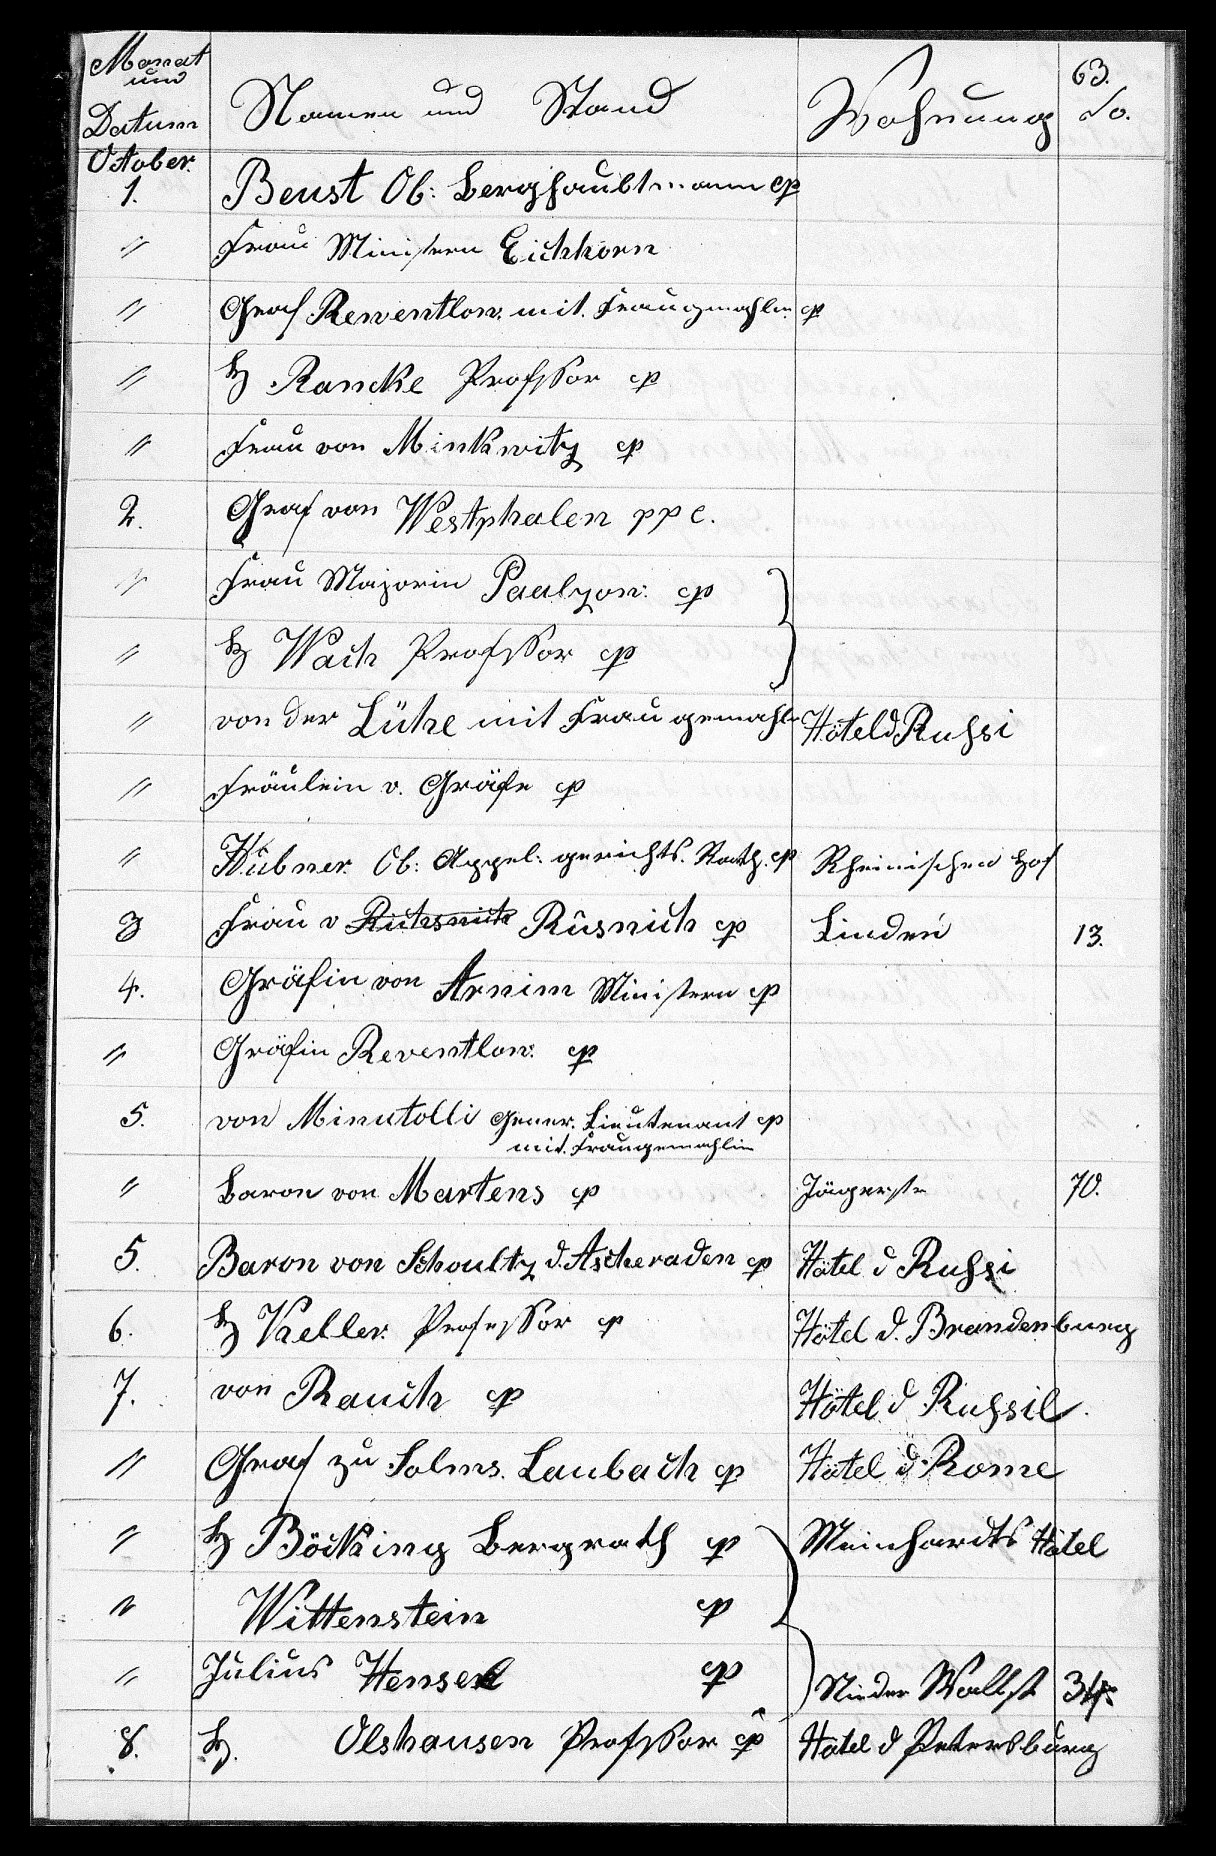 Monat und Datum Namen und Stand Wohnung 63. No.
October.
1. Beust Ob: Berghaubtmann cp
" Frau Ministern Eichhorn
" Graf Rewentlow. mit. Fraugmahlin cp
" H Rancke Professor cp
" Frau von Minkwitz cp
2. Graf von Westphalen ppc.
" Frau Majorin Paalzow: cp
" H Wach Professor cp
" von der Lühe mit Frau gemahl Hôtel d Russi
" Fräulein v. Gräfe cp
" Hübner Ob: Appel: gerichts. Rath. cp Rheinischen Hof
3 Frau v Ruhsnich Rüsnich cp Linden 13.
4. Gräfin von Arnim Ministern cp
" Gräfin Reventlow: cp
5. von Minutolli Gener. Lieutenant cp
mit. Fraugemahlin
" Baron von Martens cp Jägerstr 70.
5. Baron von Schoultz d. Ascheraden cp Hôtel d Russi
6. H Keller. Professor cp Hôtel d. Brandenburg
7. von Rauch cp Hôtel d Russil.
" Graf zu Solms. Laubach cp Hôtel d. Rome
" H Böcking Bergrath cp Meinhardts Hôtel
" Wittenstein cp
" Julius Hensel cp Nieder Wallst 34.
8. H. Olshausen Professor cp Hotel d Petersburg